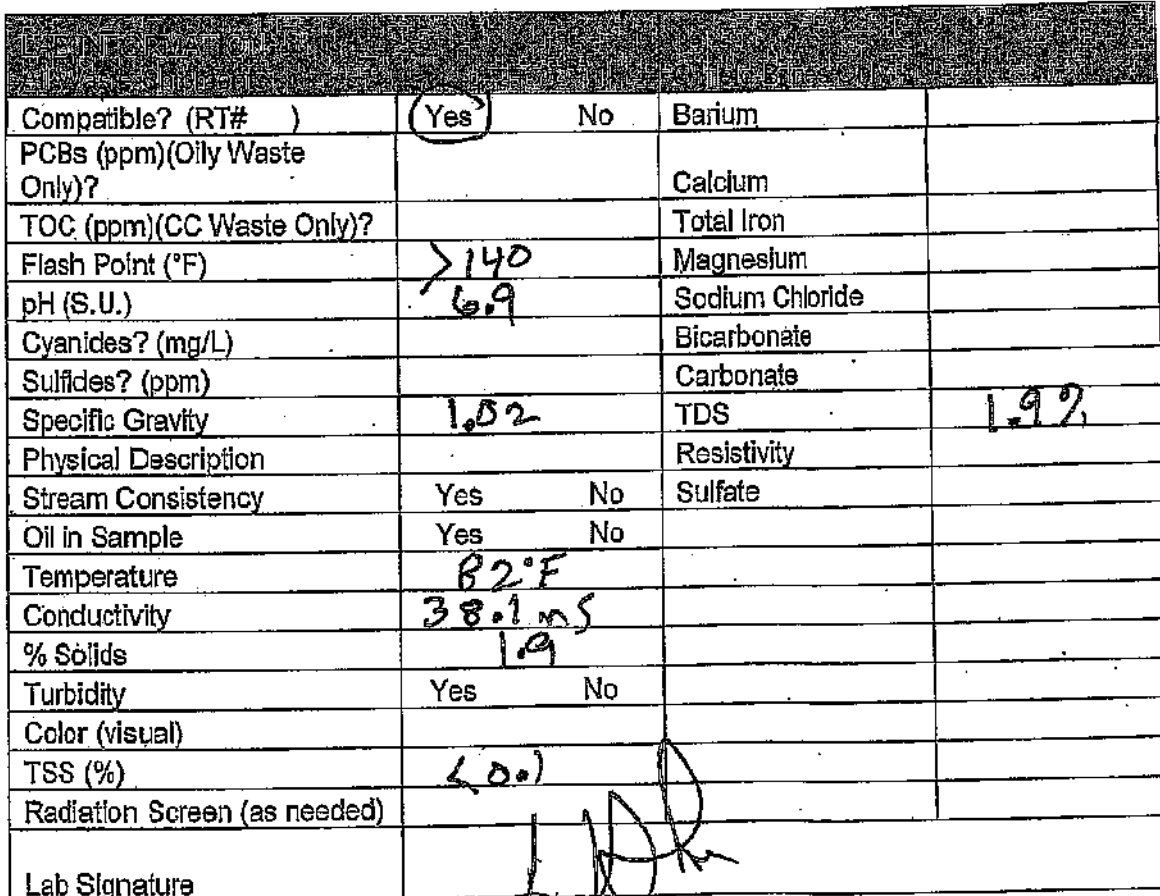 LAB INFORMATION
Compatible? (RT# ) Yes No Barium
PCBs (ppm)(Oily Waste
Only)? Calcium
TOC (ppm)(CC Waste Only)? Total Iron
Flash Point (°F) >140 Magnesium
pH (S.U.) 6.9 Sodium Chloride
Cyanides? (mg/L) Bicarbonate
Sulfides? (ppm) Carbonate
Specific Gravity 1.02 TDS 1.9%
Physical Description Resistivity
Stream Consistency Yes No Sulfate
Oil in Sample Yes No
Temperature 82°F
Conductivity 38.1 mS
% Solids 1.9
Turbidity Yes No
Color (visual)
TSS (%) <0.1
Radiation Screen (as needed)
Lab Signature